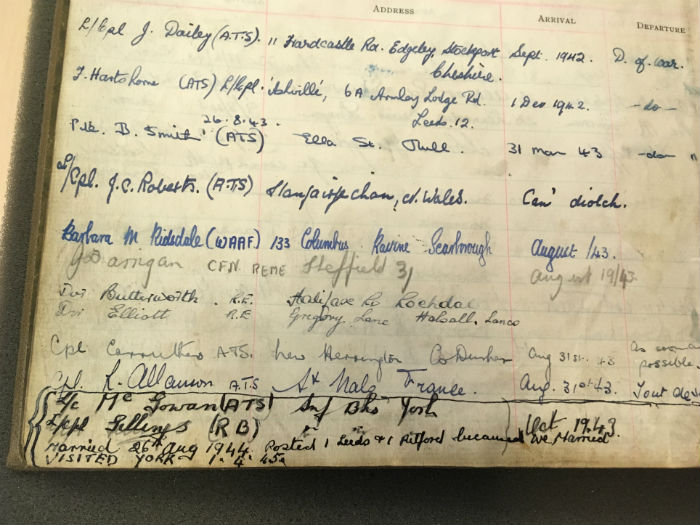 ADDRESS ARRIVAL DEPARTURE
L/Cpl J. Dailey (A.T.S) 11 Hardcastle Rd. Edgeley, Stockport Sept. 1942. D. of war.
Cheshire.
F. Hartshorne (ATS) L/Cpl. 'Ashville', 6A Armley Lodge Rd. 1 Dec 1942. -do-
Leeds. 12.
26.8.43.
Pte. B. Smith (ATS) Ella St. Hull. 31 Mar 43 -do- "
L/Cpl. J.C. Roberts. (A.T.S) N. Wales. Can' diolch.
Barbara M Ridsdale (WAAF) 133 Columbus Ravine Scarborough August /43.
CFN REME Sheffield 31 August 19/43
Dvr Butterworth. R.E. Halifax Rd Rochdale
Dvr Elliott R.E Gregory Lane Halsall, Lancs
Cpl Carruthers A.T.S. New Herrington Co Durham Aug 31st. 43 As
possible.
Cpl. L. Allanson A.T.S St Malo France. Aug. 31st 43. Tout
L/c Mc Gowan (ATS) Inf Bks York
L/cpl Gillings (RB) Oct 19.43.
Married 26th Aug 1944. Posted 1 Leeds & 1 Retford because we Married
VISITED YORK 1. 4. 45